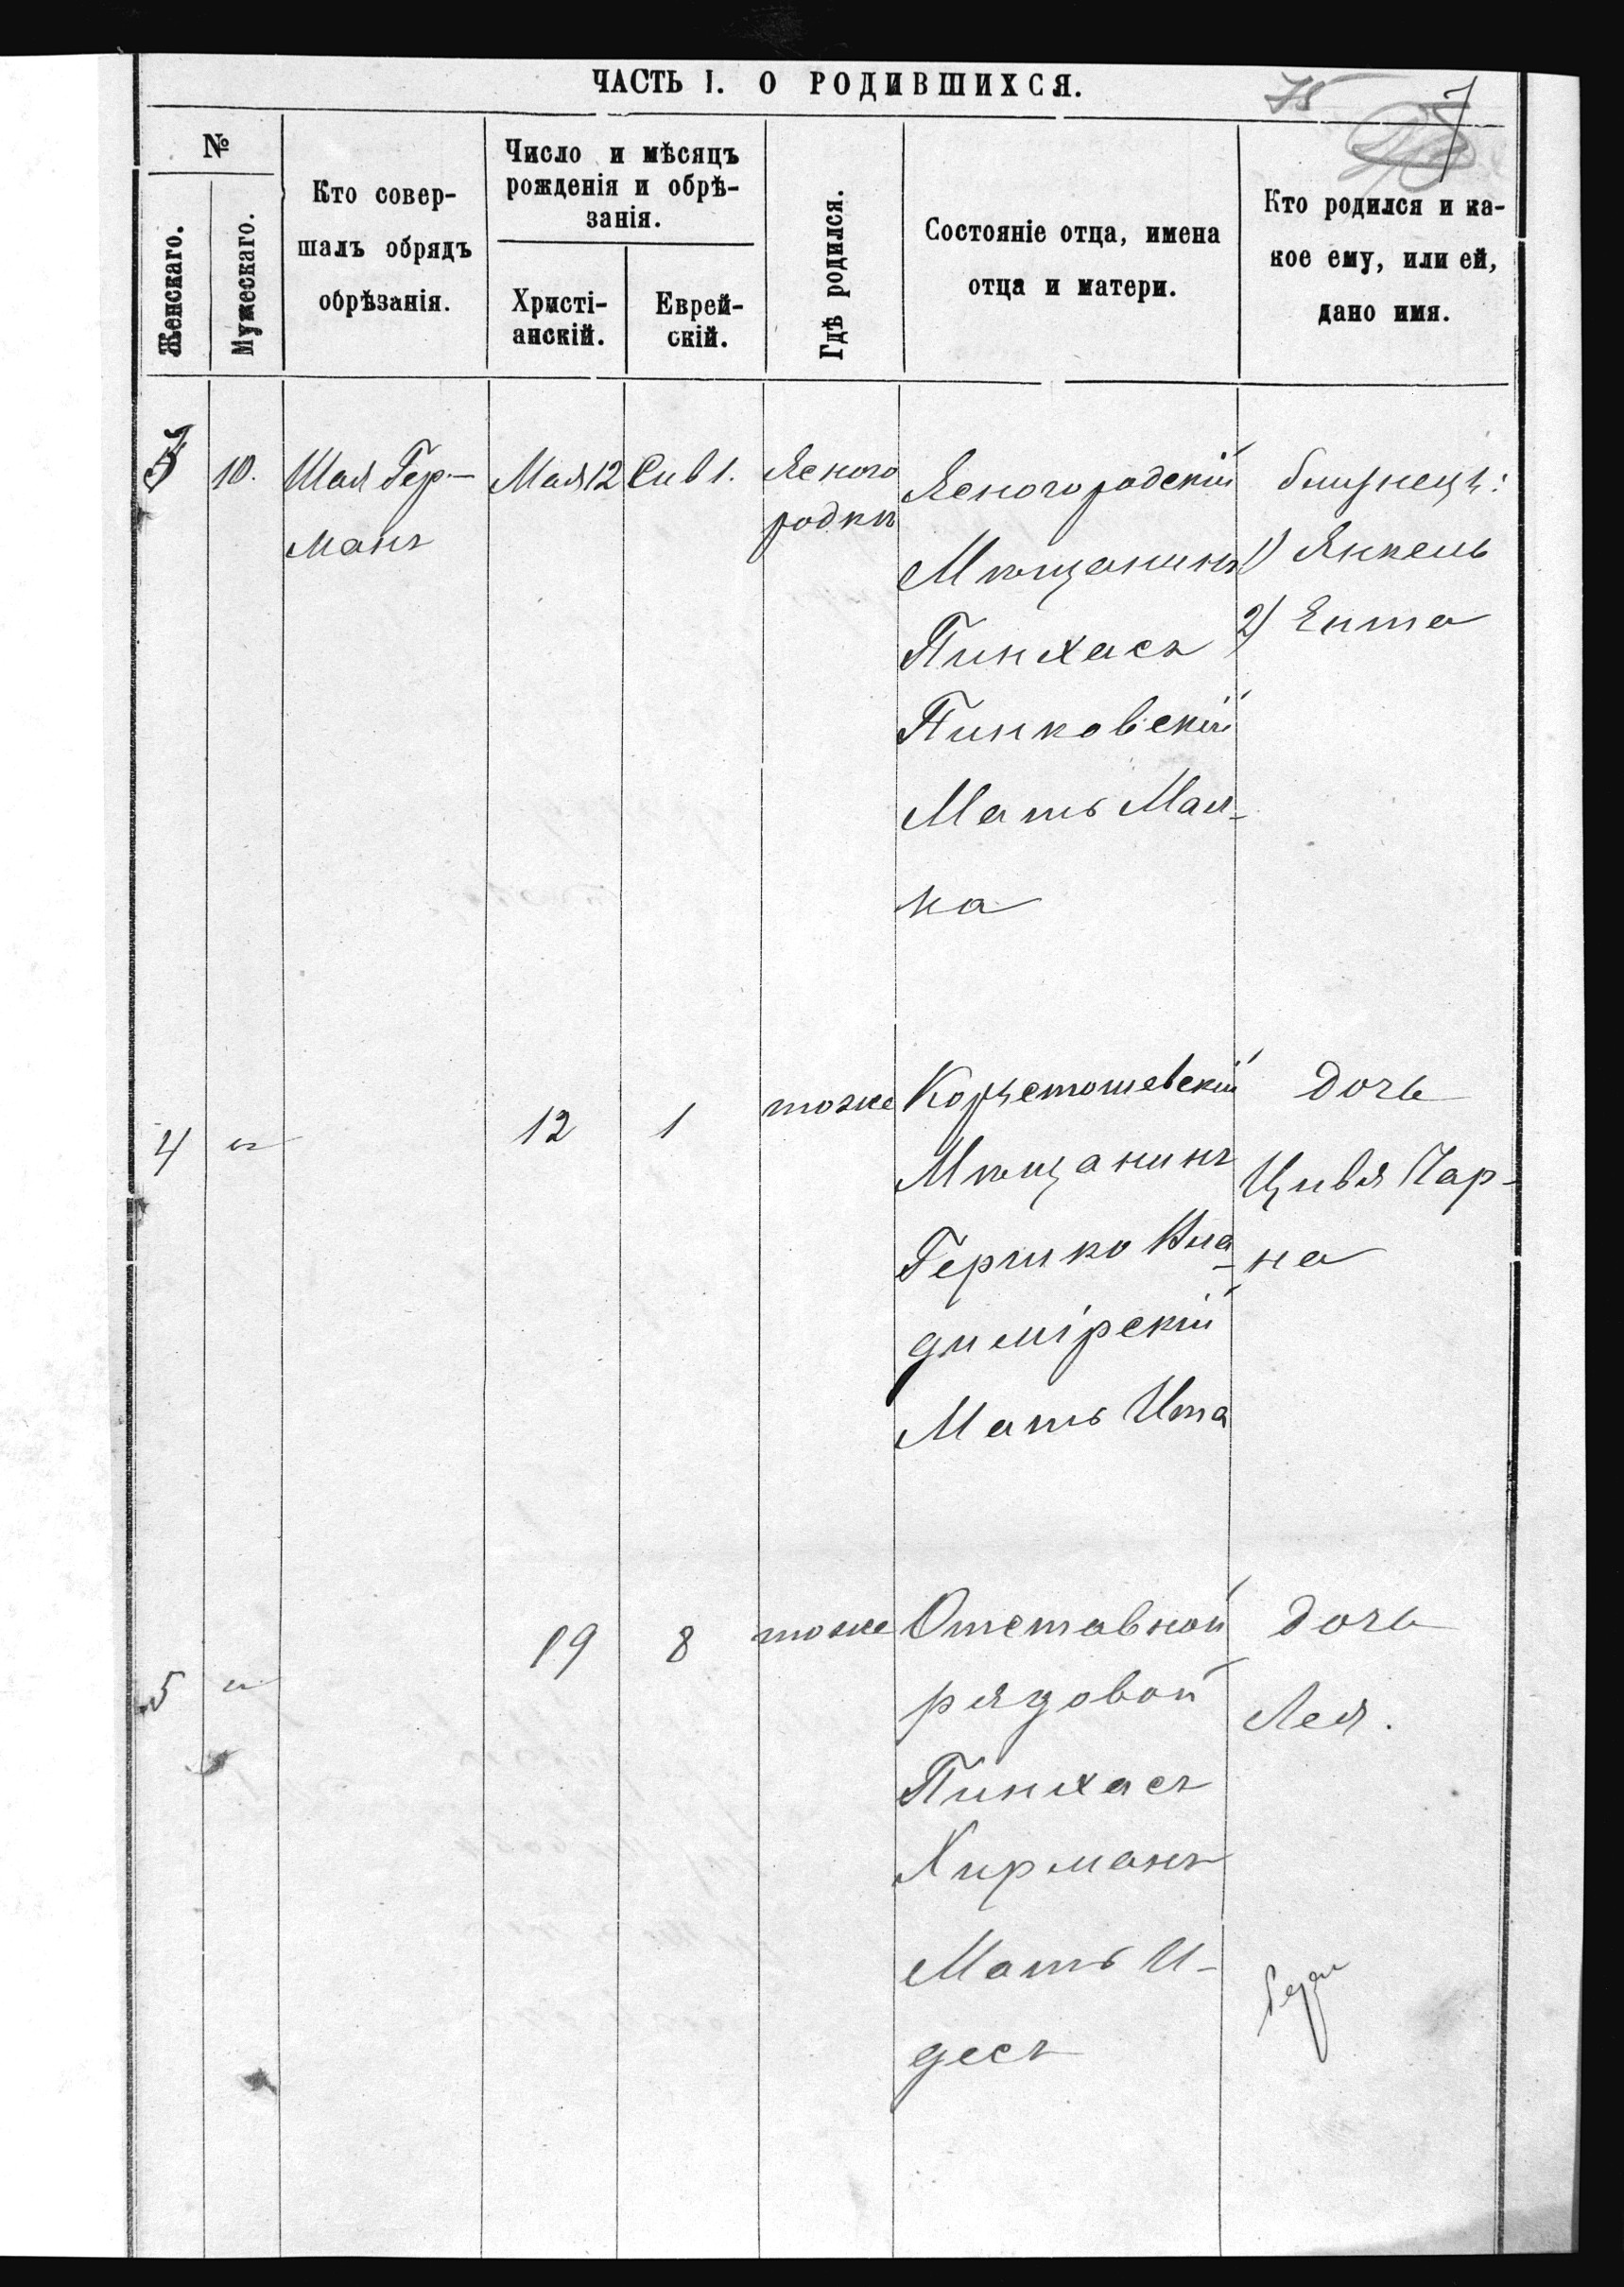 ЧАСТЬ I. О РОДИВШИХСЯ.
75
7
№
Женскаго.
Мужескаго.
Кто совер-
шалъ обрядъ
обрѣзанія.
Число и мѣсяцъ
рожденія и обрѣ-
занія.
Христі-
анскій.
Еврей-
скій.
Гдѣ родился.
Состояніе отца, имена
отца и матери.
Кто родился и ка-
кое ему, или ей,
дано имя.
3
10.
Шая Гер-
манъ
Мая 12
Сив 1.
Ясного
родкѣ
Ясногородскій
Мѣщанинъ
Пинхасъ
Пинковскій
Мать Мал-
ка
близнецы:
1) Янкель
2) Ента
4
"
12
1
тоже
Мѣщанинъ
Гершко Вла-
димірскій
Мать Ита
дочь
Цивя Чар-
на
5
"
19
8
тоже
Отставной
рядовой
Пинхасъ
Хирманъ
Мать И-
десъ
дочь
Лея.